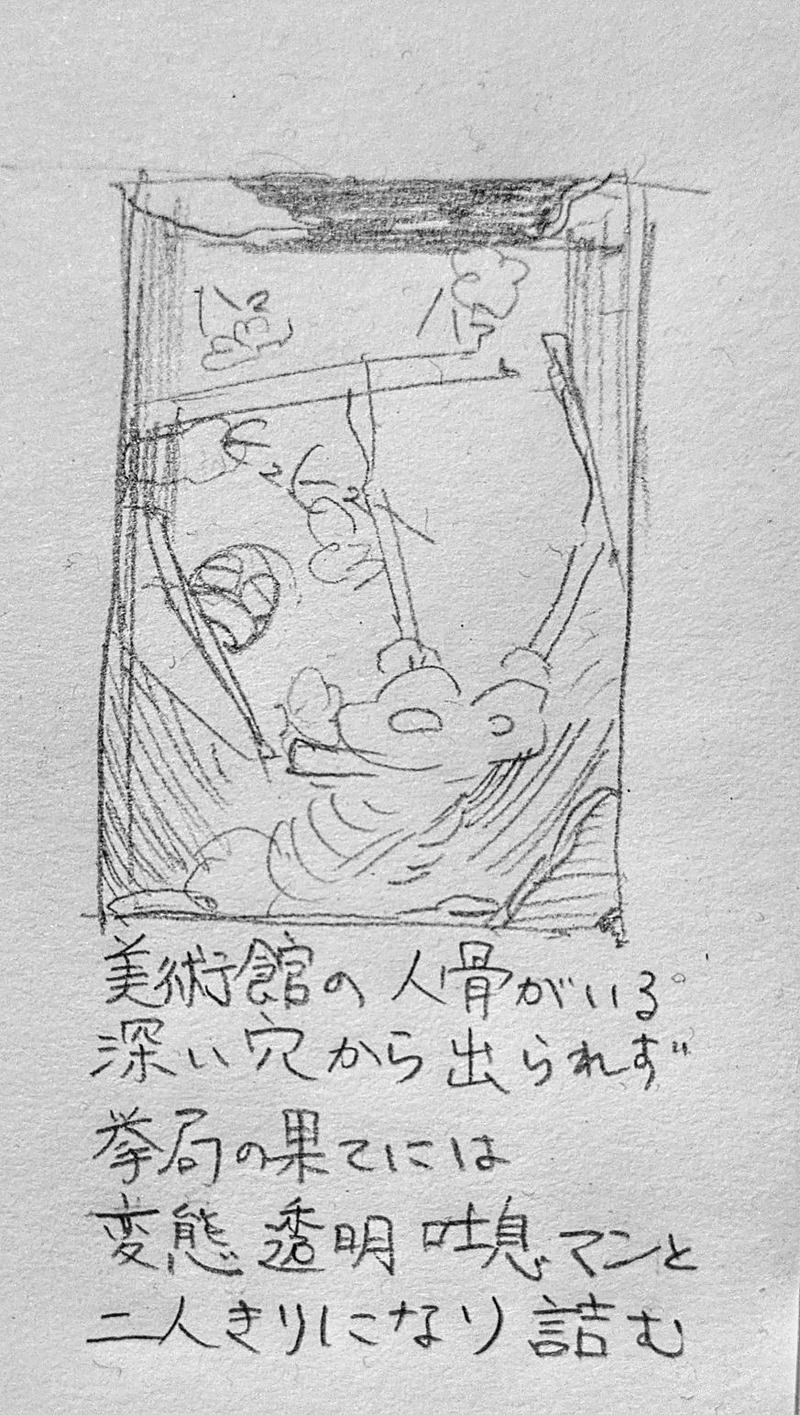 美術館の人骨がいる。
深い穴から出られず
挙局の果てには
変態透明吐息マンと
二人きりになり詰む